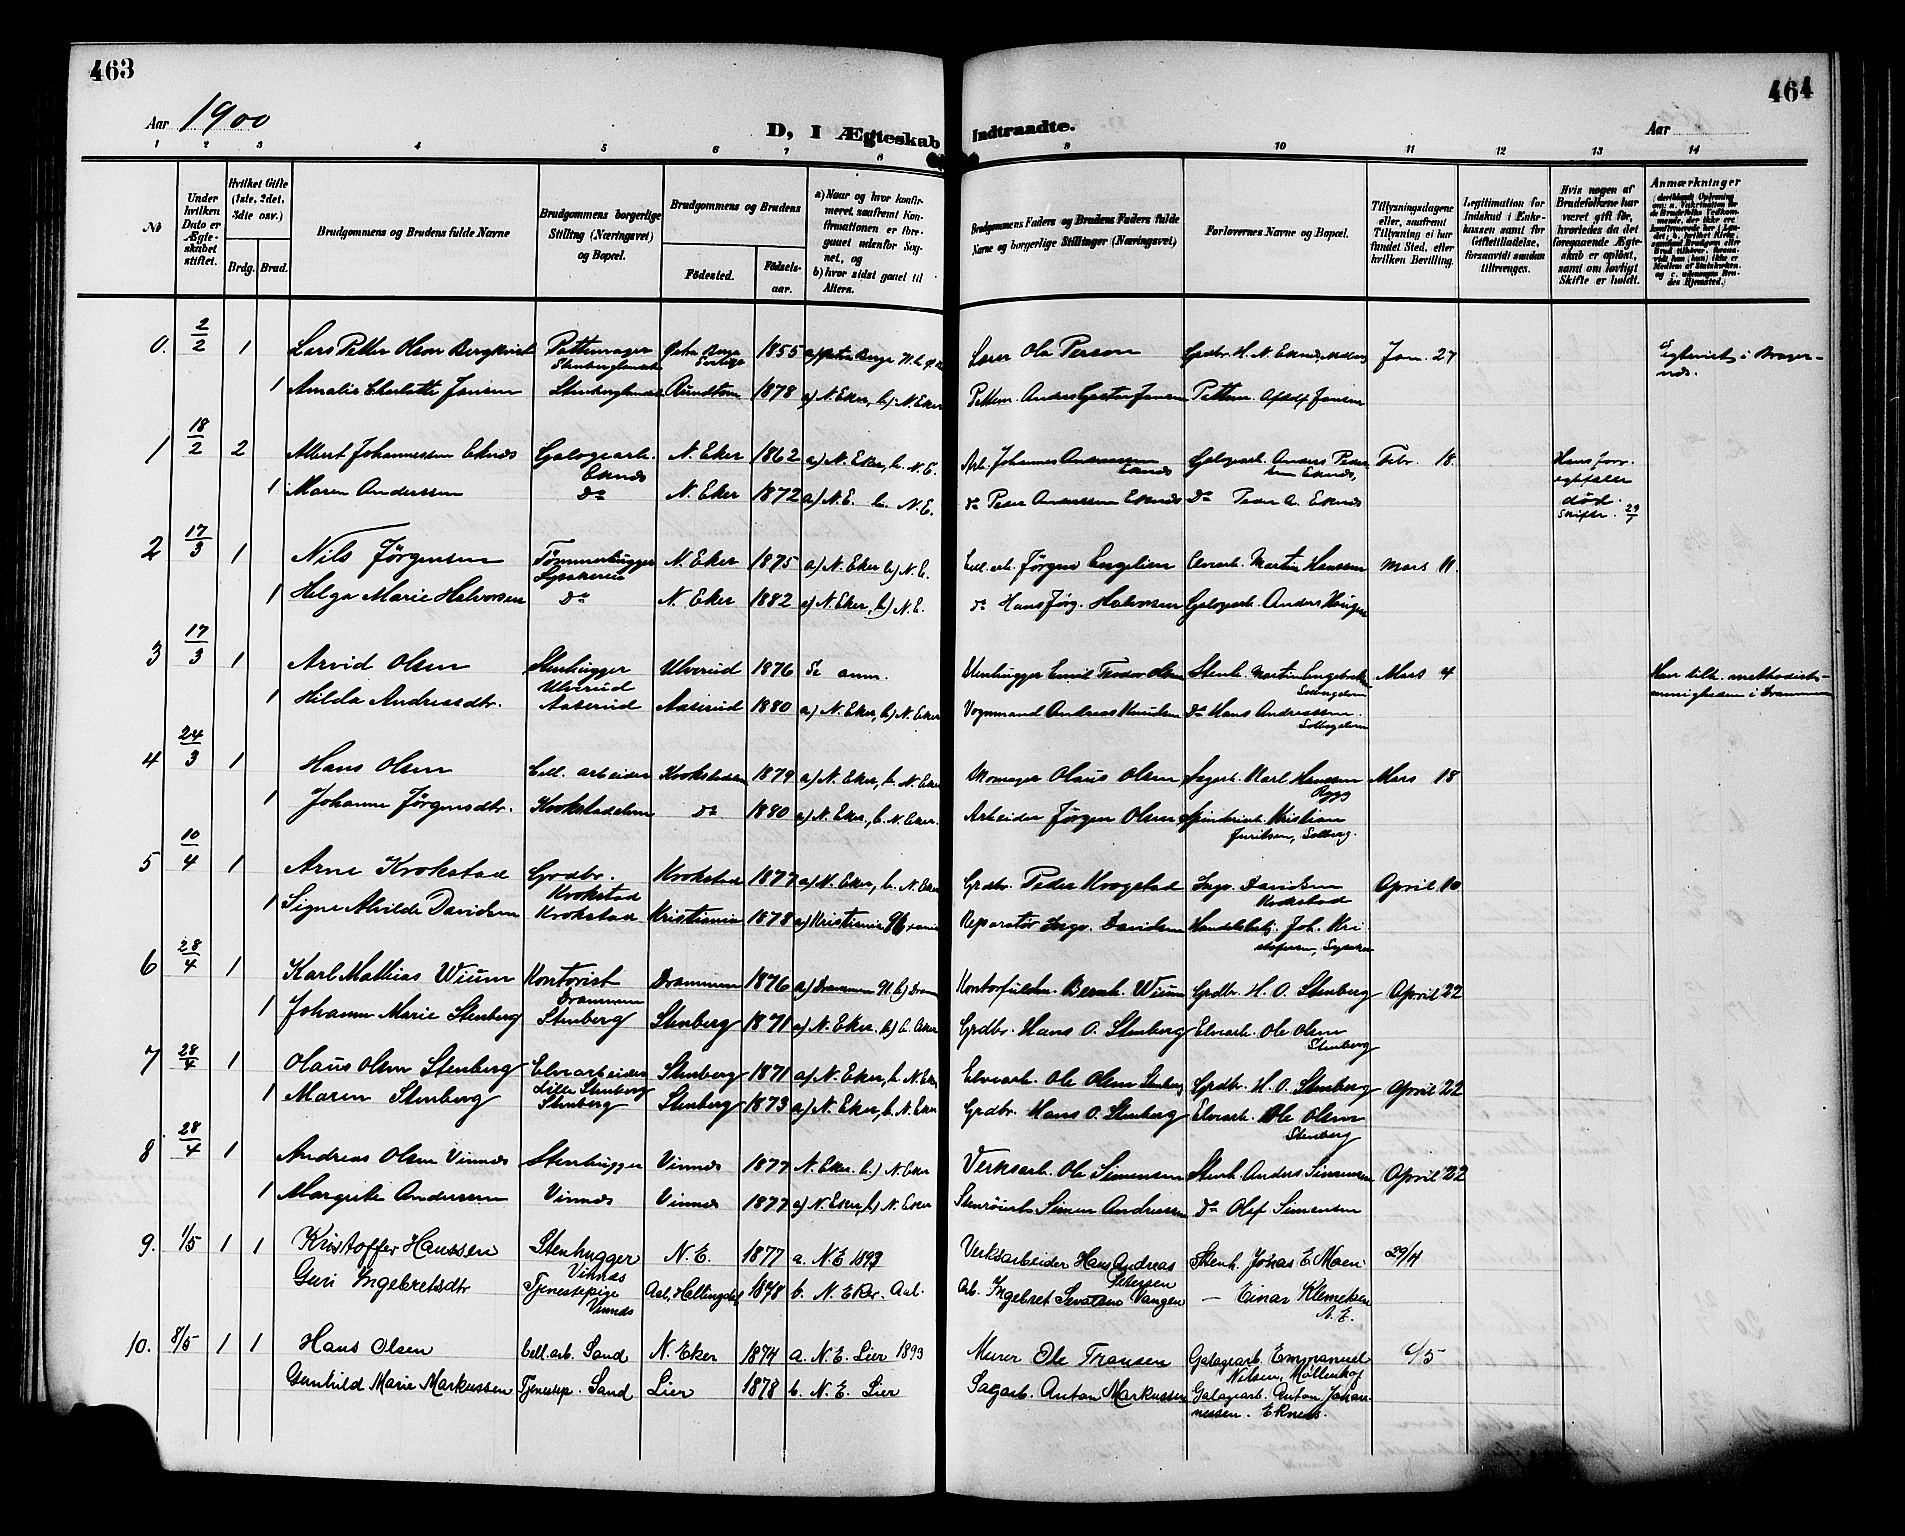 463
464
Aar 1900
D, I Ægteskab Indtraadte.
Aar
1 2 3 4 5 6 7 8 9 10 11 12 13 14
No
Under hvilken Dato er Ægteskabet stiftet.
Hvilket Gifte (1ste, 2det, 3die osv.)
Brdg. Brud.
Brudgommens og Brudens fulde Navne
Brudgommens borgerlige Stilling (Næringsvei) og Bopæl.
Brudgommens og Brudens
Fødested.
Fødsels-aar.
a) Naar og hvor konfirmeret, saafremt Konfirmationen er foregaaet udenfor Sognet, og
b) hvor sidst gaaet til Alters.
Brudgommens Faders og Brudens Faders fulde Navne og borgerlige Stillinger (Næringsvei)
Forlovernes Navne og Bopæl.
Tillysningsdagene eller, saafremt Tillysning ei har fundet Sted, efter hvilken Bevilling.
Legitimation for Indskud i Enkekassen samt for Giftetilladelse, forsaavidt saadan tiltrænges.
Hvis nogen af Brudefolkene har været gift før, hvorledes da det foregaaende Ægteskab er opløst, samt om lovligt Skifte er holdt.
Anmærkninger
0. 2/2 1 Lars Petter Olsen Bergkvist 1855 Ola Person Jan. 27
1 Amalie Charlotte Jansen Stenberg 1878 a) N. Eker, b) N. Eker Jansen
1 18/2 2 Albert Johannessen Eknæs Galogearb. Eknæs N. Eker 1862 a) N. Eker, b. N. E. Arb. Johannes Andersen Eknæs Galogearb. Anders Pedersen Eknæs, Febr. 18. Hans forr. død. Skifte. 29/7
1 Maren Anderssen do N. Eker 1872 a) N. E. b. N. E. do Peder Anderssen Eknæs do Peder A. Eknæs
2 17/3 1 Nils Jørgensen Tømmerhugger N. Eker 1875 a) N. Eker b) N. E. Jørgen Engelien Elvearb. Martin Hanssen Mars 11.
1 Helga Marie Halvorsen do N. Eker 1882 a) N. Eker, b) N. E. do Hans Jørg. Halvorsen Galogearb. Anders Haugen
3 17/3 1 Arvid Olsen Stenhugger Ulverud Ulverud 1876 Se anm. Stenhugger Emil Teodor Olsen Stenh. Martin Engebretsen Solbergelven Mars 4 Han tilh. methodistmenigheden i Drammen
1 Hilda Andreasdtr. Aaserud Aaserud 1880 a) N. Eker, b) N. Eker Vognmand Andreas Knudsen do Hans Andreassen. Solbergelven
4 24/3 1 Hans Olsen Cell. arbeider Krokstadelven 1879 a) N. Eker, b. N. Eker Skomager Olaus Olsen Sagarb. Karl Hanssen Rygg Mars 18
1 Johanne Jørgensdtr. Krokstadelven do 1880 a) N. Eker, b. N. Eker. Arbeider Jørgen Olsen Spinderiarb. Kristian Solberg.
5 10/4 1 Arne Krokstad Grdbr. Krokstad Krokstad 1877 a) N. Eker, b. N. Eker Grdbr. Peder Krogstad Ingv. Davidsen Krokstad April 10
1 Signe Alvilde Davidsen Krokstad Kristiania 1878 a) Kristiania Reparatør Ingv. Davidsen Handelsbetj. Joh. Kristofersen,
6 28/4 1 Karl Mathias Wium Kontorist Drammen Drammen 1876 a) Drammen b) Dram Bernh. Wium Grdbr. H. O. Stenberg April 22
1 Johanne Marie Stenberg Stenberg Stenberg 1871 a) N. Eker. b) N. Eker Grdbr. Hans O. Stenberg Elvearb. Ole Olsen Stenberg
7 28/4 1 Olaus Olsen Stenberg Elvearbeider Lille Stenberg Stenberg 1871 a) N. Eker, b. N. Eker Elvearb. Ole Olsen Stenberg Grdbr. H. O. Stenberg April 22
1 Maren Stenberg Stenberg Stenberg 1873 a) N. Eker, b. N. Eker Grdbr. Hans O. Stenberg Elvearb. Ole Olsen Stenberg
8 28/4 1 Andreas Olsen Vinnæs Stenhugger Vinnæs 1877 N. Eker. b.) N. Eker Verksarb. Ole Simensen Stenh. Anders Simensen April 22
1 Margrethe Andersen Vinnæs Vinnæs 1877 a) N. Eker, b) N. Eker Simen Andreassen do Olef Simensen
9. 1/5 1 1 Kristoffer Hanssen Stenhugger Vinnæs N. E. 1877 a. N. E 1893 Verksarbeider Hans Andreas Petersen Stenh. Johas E. Moen 29/4
Guri Ingebretsdtr Tjenestepige Vinnæs Aal, Hallingdal 1878 b. N. Eker. Aal. Arb. Ingebret Sevatsen Vangen — Einar Klemetsen N. E.
10. 8/5 1 1 Hans Olsen Cell. arb. Sand N. Eker 1874 a. N. E. Lier 1893 Murer Ole Transen Galagearb. Emmanuel Nilsen, Møllenhof 6/5
Gunhild Marie Markussen Tjenestep. Sand Lier 1878 b. N. E. Lier Sagarb. Anton Markussen Galagearb. Anton Johannessen. Eknes.